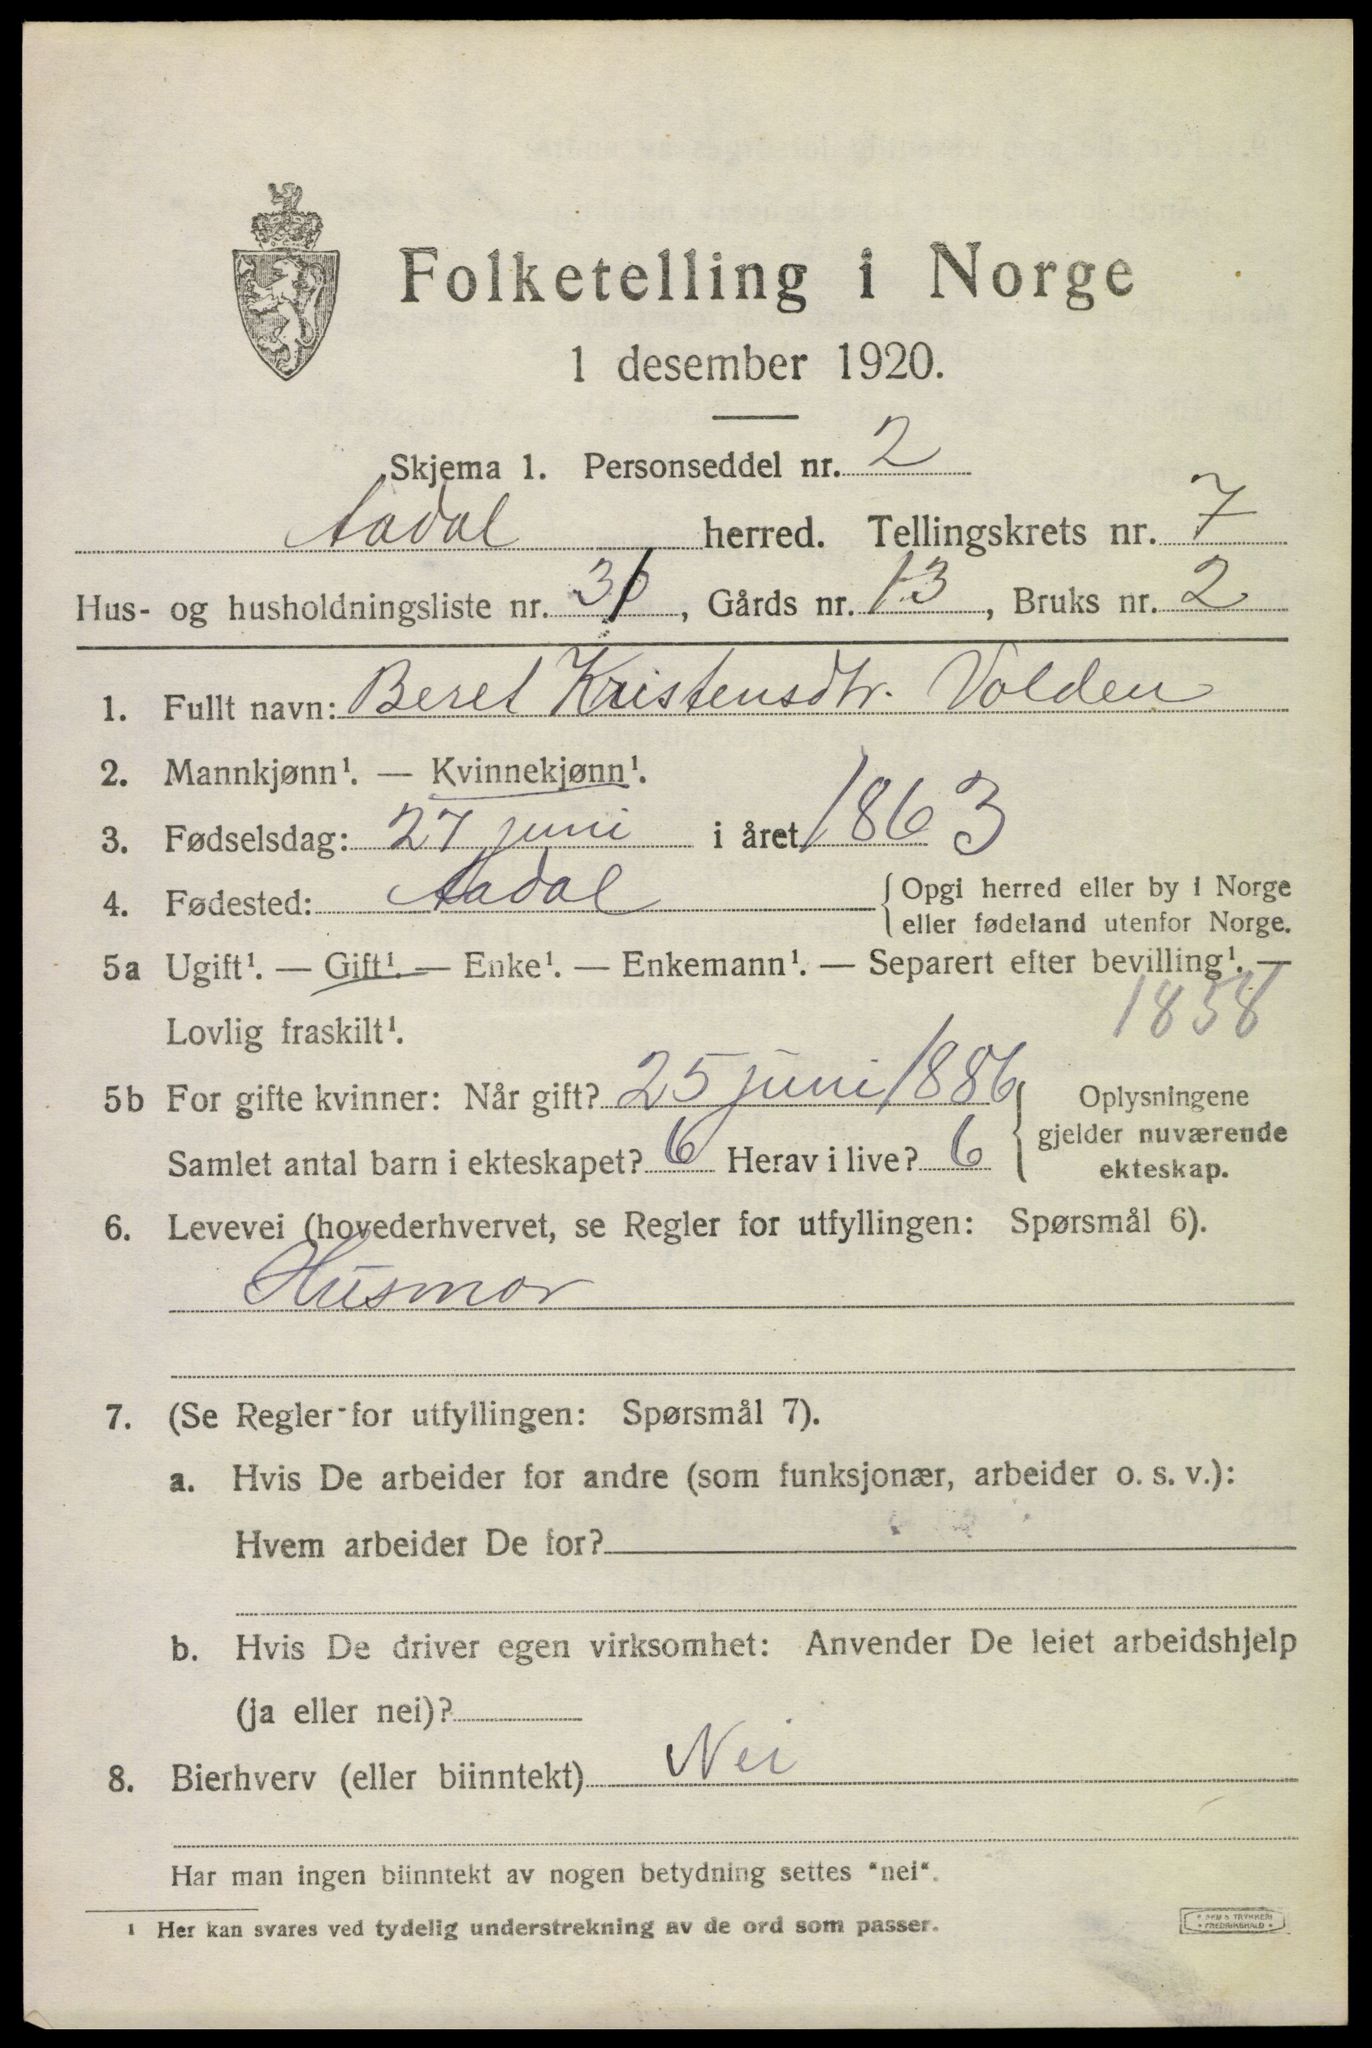 Folketelling i Norge
1 desember 1920.
Skjema 1. Personseddel nr. 2
Aadal herred. Tellingskrets nr. 7
Hus- og husholdningsliste nr. 31, Gårds nr. 13, Bruks nr. 2
1. Fullt navn: Beret Kristensdtr. Volden
2. Mannkjønn¹. — Kvinnekjønn¹.
3. Fødselsdag: 27 juni i året 1863
4. Fødested: Aadal {Opgi herred eller by i Norge
eller fødeland utenfor Norge.
5a Ugift¹. — Gift¹. — Enke¹. — Enkemann¹. — Separert efter bevilling¹. —
Lovlig fraskilt¹.
1858
5b For gifte kvinner: Når gift? 25 juni 1886
Samlet antal barn i ekteskapet? 6 Herav i live? 6
Oplysningene
gjelder nuværende
ekteskap.
6. Levevei (hovederhvervet, se Regler for utfyllingen: Spørsmål 6).
Husmor
7. (Se Regler for utfyllingen: Spørsmål 7).
a. Hvis De arbeider for andre (som funksjonær, arbeider o. s. v.):
Hvem arbeider De for?
b. Hvis De driver egen virksomhet: Anvender De leiet arbeidshjelp
(ja eller nei)?
8. Bierhverv (eller biinntekt) Nei
Har man ingen biinntekt av nogen betydning settes "nei".
¹ Her kan svares ved tydelig understrekning av de ord som passer.
TRYKKERI
FREDRIKSHALD